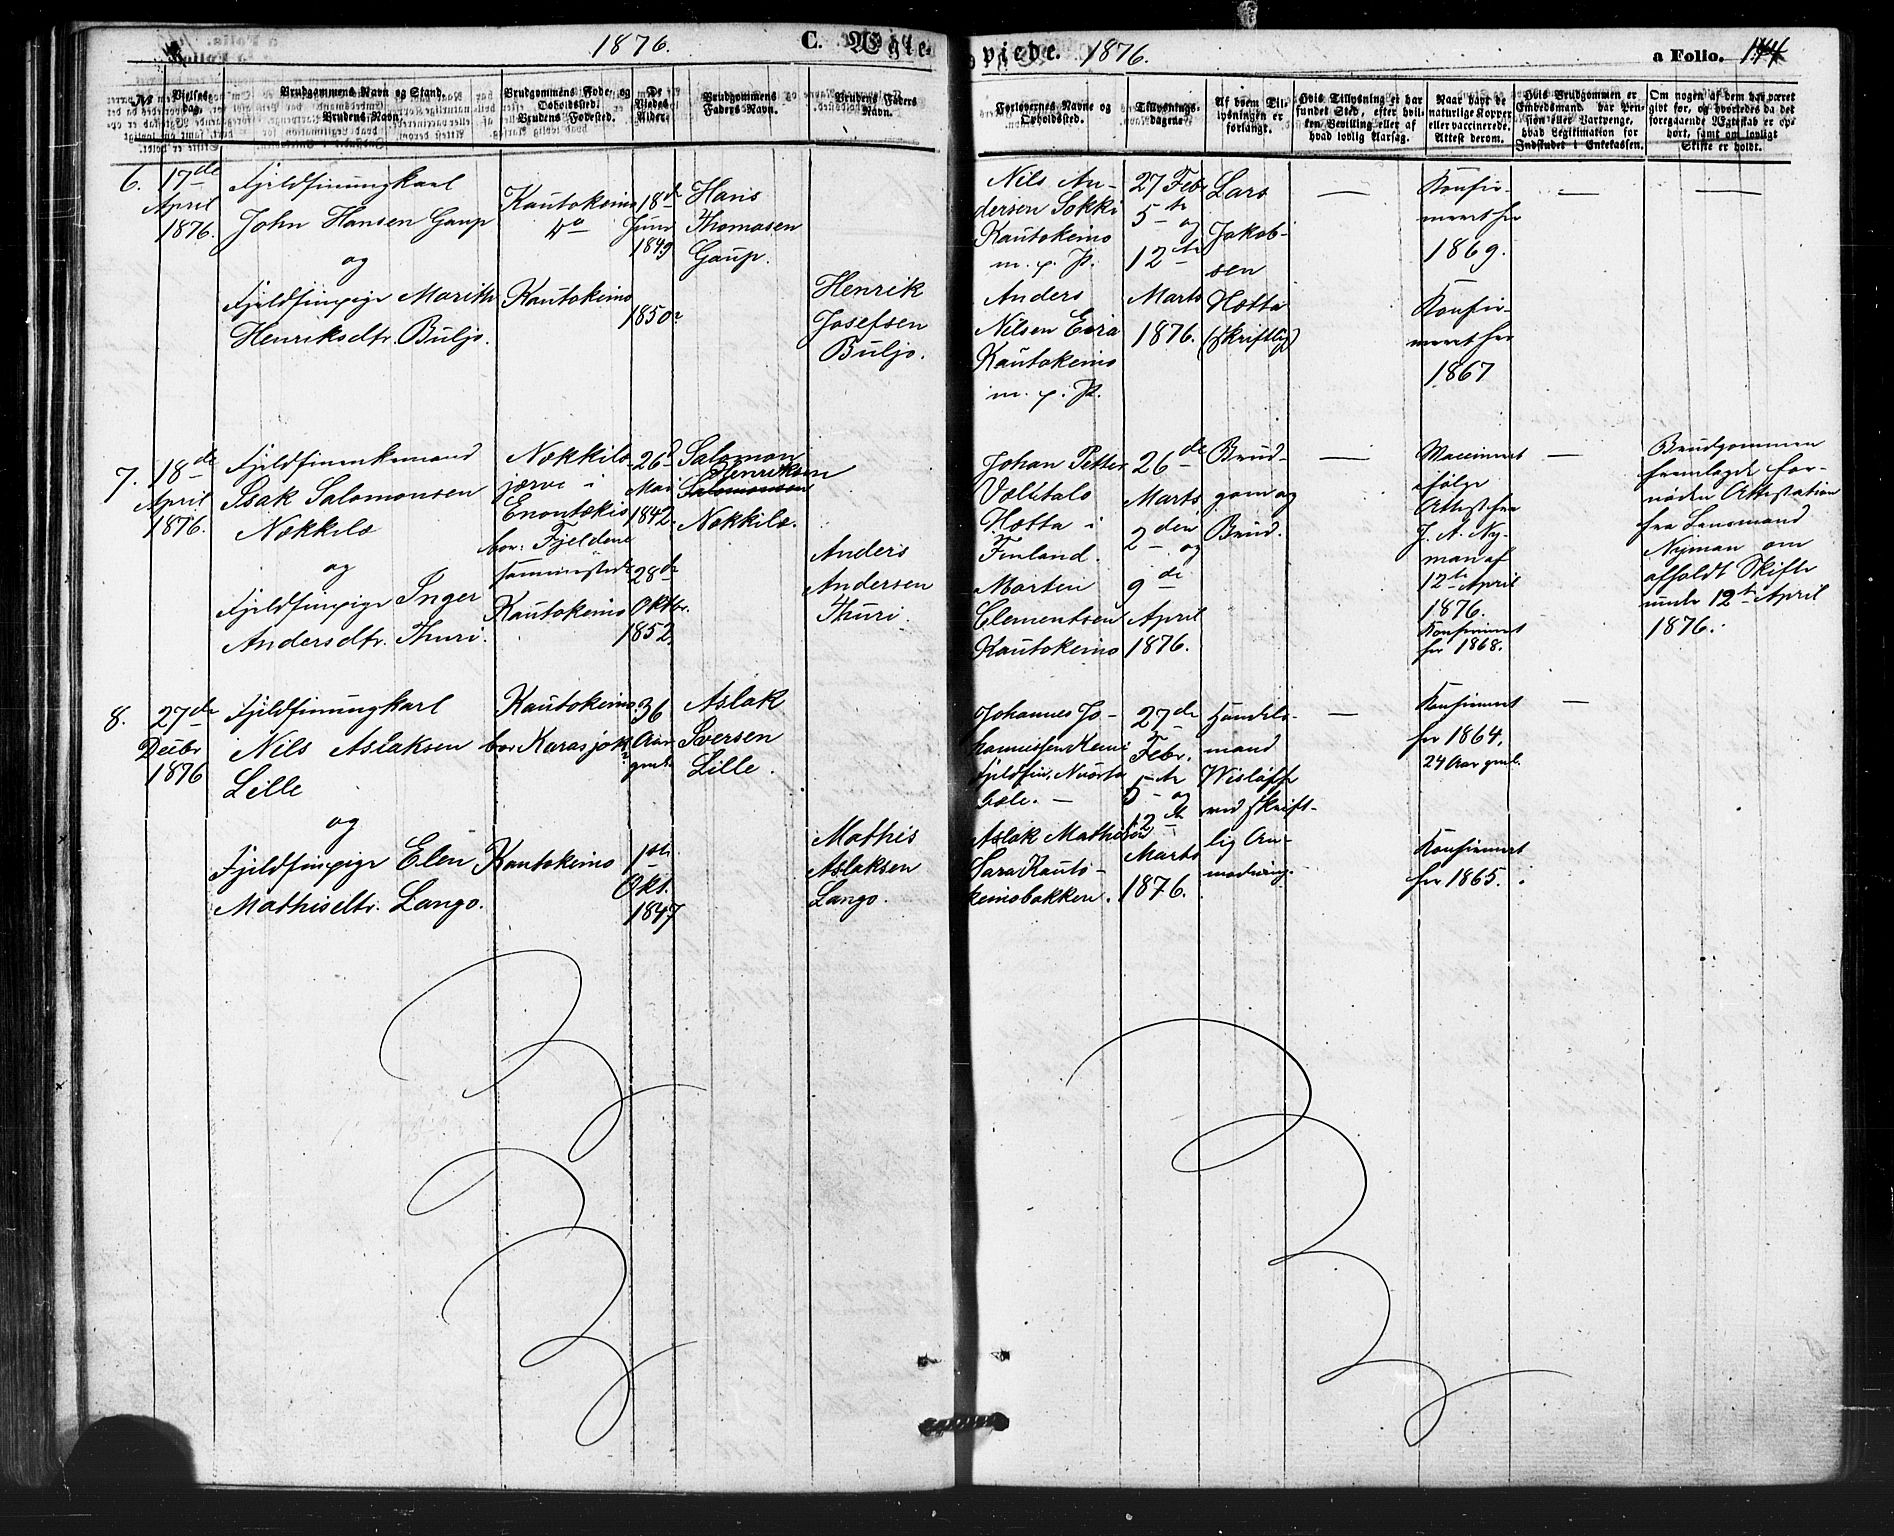 1876. C. Ægte-
viede. 1876. a Folio. 144
No
Vielses-dag.
Brudgommens Navn og Stand.
Brudens Navn.
Brudgommens Føde- og Opholdssted.
Brudens Fødested.
De Viedes Alder.
Brudgommens Faders Navn.
Brudens Faders Navn.
Forlovernes Navne og Opholdssted.
Tillysnings-dagene.
Af hvem Tillysningen er forlangt.
Hvis Tillysning er har fundet Sted, efter hvilken Bevilling eller af hvad lovlig Aarsag.
Naar havt de naturlige Kopper eller vaccinerede. Attest derom.
Hvis Brudgommen er Embedsmand har Pension eller Vartpenge, hvad Legitimation for Indskudet i Enkekassen.
Om nogen af dem har været gift før, og hvorledes da det foregaaende Ægteskab er ophørt, samt om lovligt Skifte er holdt.
6.
17de
April
1876.
Fjeldfinungkarl
John Hansen Gaup
og
Fjeldfinpige Marith
Henriksdtr. Buljo.
Kautokeino
do
Kautokeino
18de
Juni
1849
1850
Hans
Thomasen
Gaup.
Henrik
Josefsen
Buljo.
Nils An-
dersen Sokki
Kautokeino
m. p. P.
Anders
Nilsen Eira
Kautokeino
m. p. P.
27 Feb
5te og
12te
Marts
1876.
Lars
Jakob-
sen
Hætta
(skriftlig)
—
Konfir-
meret her
1869.
Konfir-
meret her
1867
—
—
7.
18de
April
1876.
Fjeldfinenkemand
Isak Salomonsen
Nækkilæ
og
Fjeldfinpige Inger
Andersdtr. Thuri.
Nækkilæ
jærvi i
Enontekis
bor: Fjeldene
sammesteds
Kautokeino
26d
Mai
1842.
28de
Oktbr.
1852
Salomon
Henriksen
Salomonsen
Nækkilæ.
Anders
Andersen
Thuri.
Johan Petter
Vælitalo
Hætta i
Finland.
Morten
Clementsen
Kautokeino
26de
Marts
2den og
9de
April
1876.
Brud-
gom og
Brud.
—
Vaccineret
ifølge
Attest fra
J. A. Ny-
man af
12te April
1876.
Konfirmert
her 1868.
—
Brudgommen
fremlagde for-
nøden Attestation
fra Lensmand
Nyman om
afholdt Skifte
under 12te April
1876.
8.
27de
Decbr
1876
Fjeldfinungkarl
Nils Aslaksen
Lille
og
Fjeldfinpige Elen
Mathisdtr. Lango.
Kautokeino
bor Karasjok
Kautokeino
36
Aar
gml.
1ste
Okt.
1847
Aslak
Iversen
Lille.
Mathis
Aslaksen
Lango.
Johannes Jo-
hannesen Kemi
Fjeldfin,
Aslak Mathisen
Sara Kauto-
keinobakken.
27de
Febr.
5te og
12te
Marts
1876.
Handels-
mand
Wisløff
ved skrift-
lig An-
modning.
—
Konfirmert
her 1864,
24 Aar gml.
Konfirmert
her 1865.
—